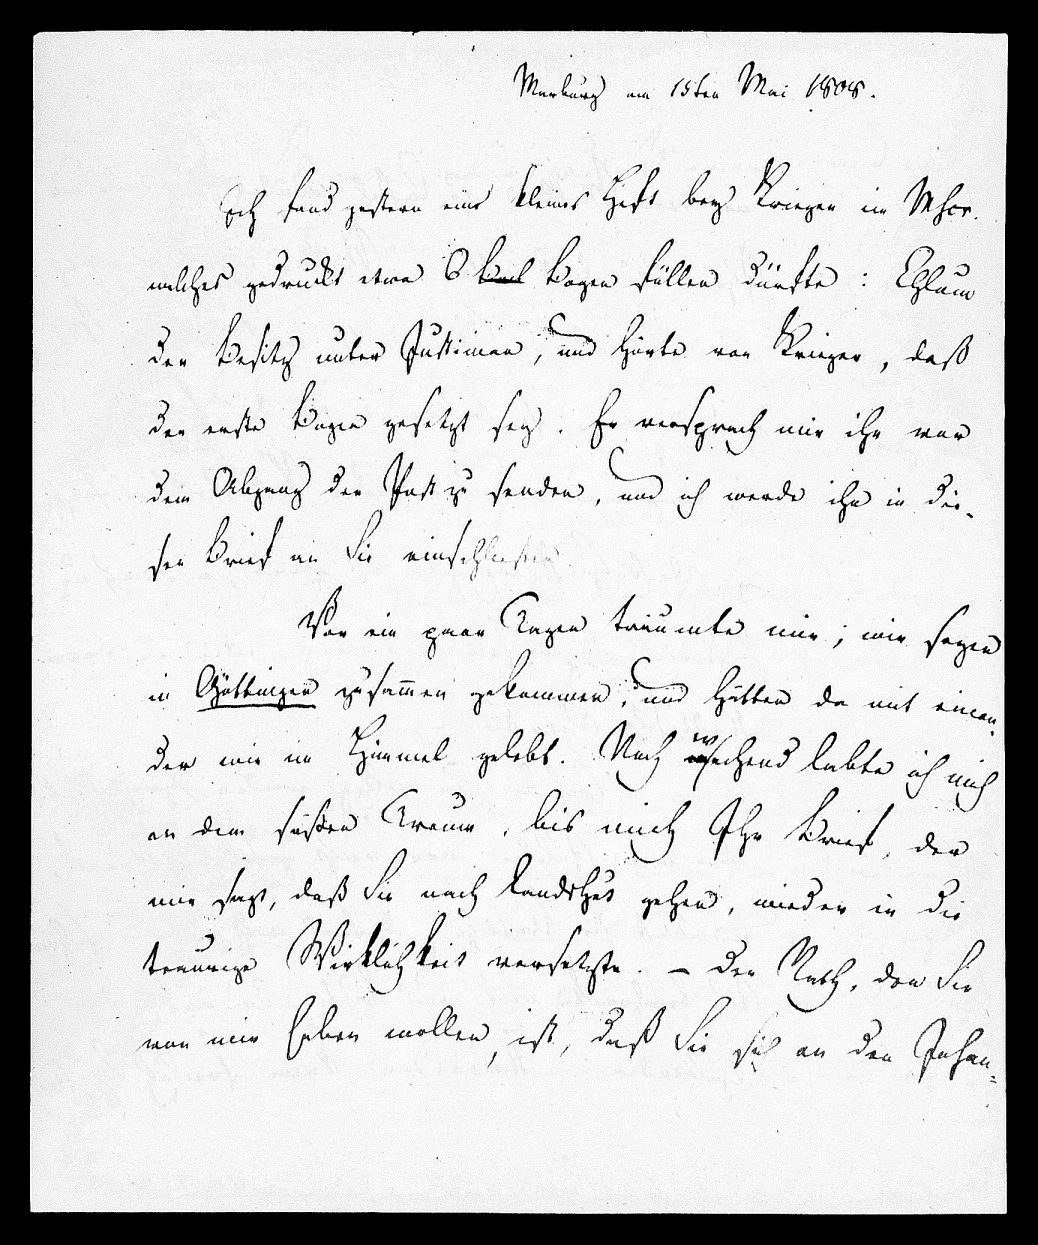 Marburg am 15ten Mai 1808.
Ich fand gestern ein kleines Heft bey Krieger im Mscr.
welches gedruckt etwa 6 Bogen füllen dürfte: Ehlam
der Besitz unter Justinian, und hörte von Krieger, daß
der erste Bogen gesetzt sey. Er versprach mir ihn vor
dem Abgang der Post zu senden, und ich werde ihn in die-
sen Brief an Sie einschließen
Vor ein paar Tagen träumte mir; wir seyen
in Göttingen zusammen gekommen, und hätten da mit einan-
der wie im Himmel gelebt. Noch wachend labte ich mich
an dem süßen Traume, bis mich Ihr Brief, der
mir sagt, daß Sie nach Landshut gehen, wieder in die
traurige Wirklichkeit versetzte. – Der Rath, den Sie
von mir haben wollen, ist, daß Sie sich an den Johan-